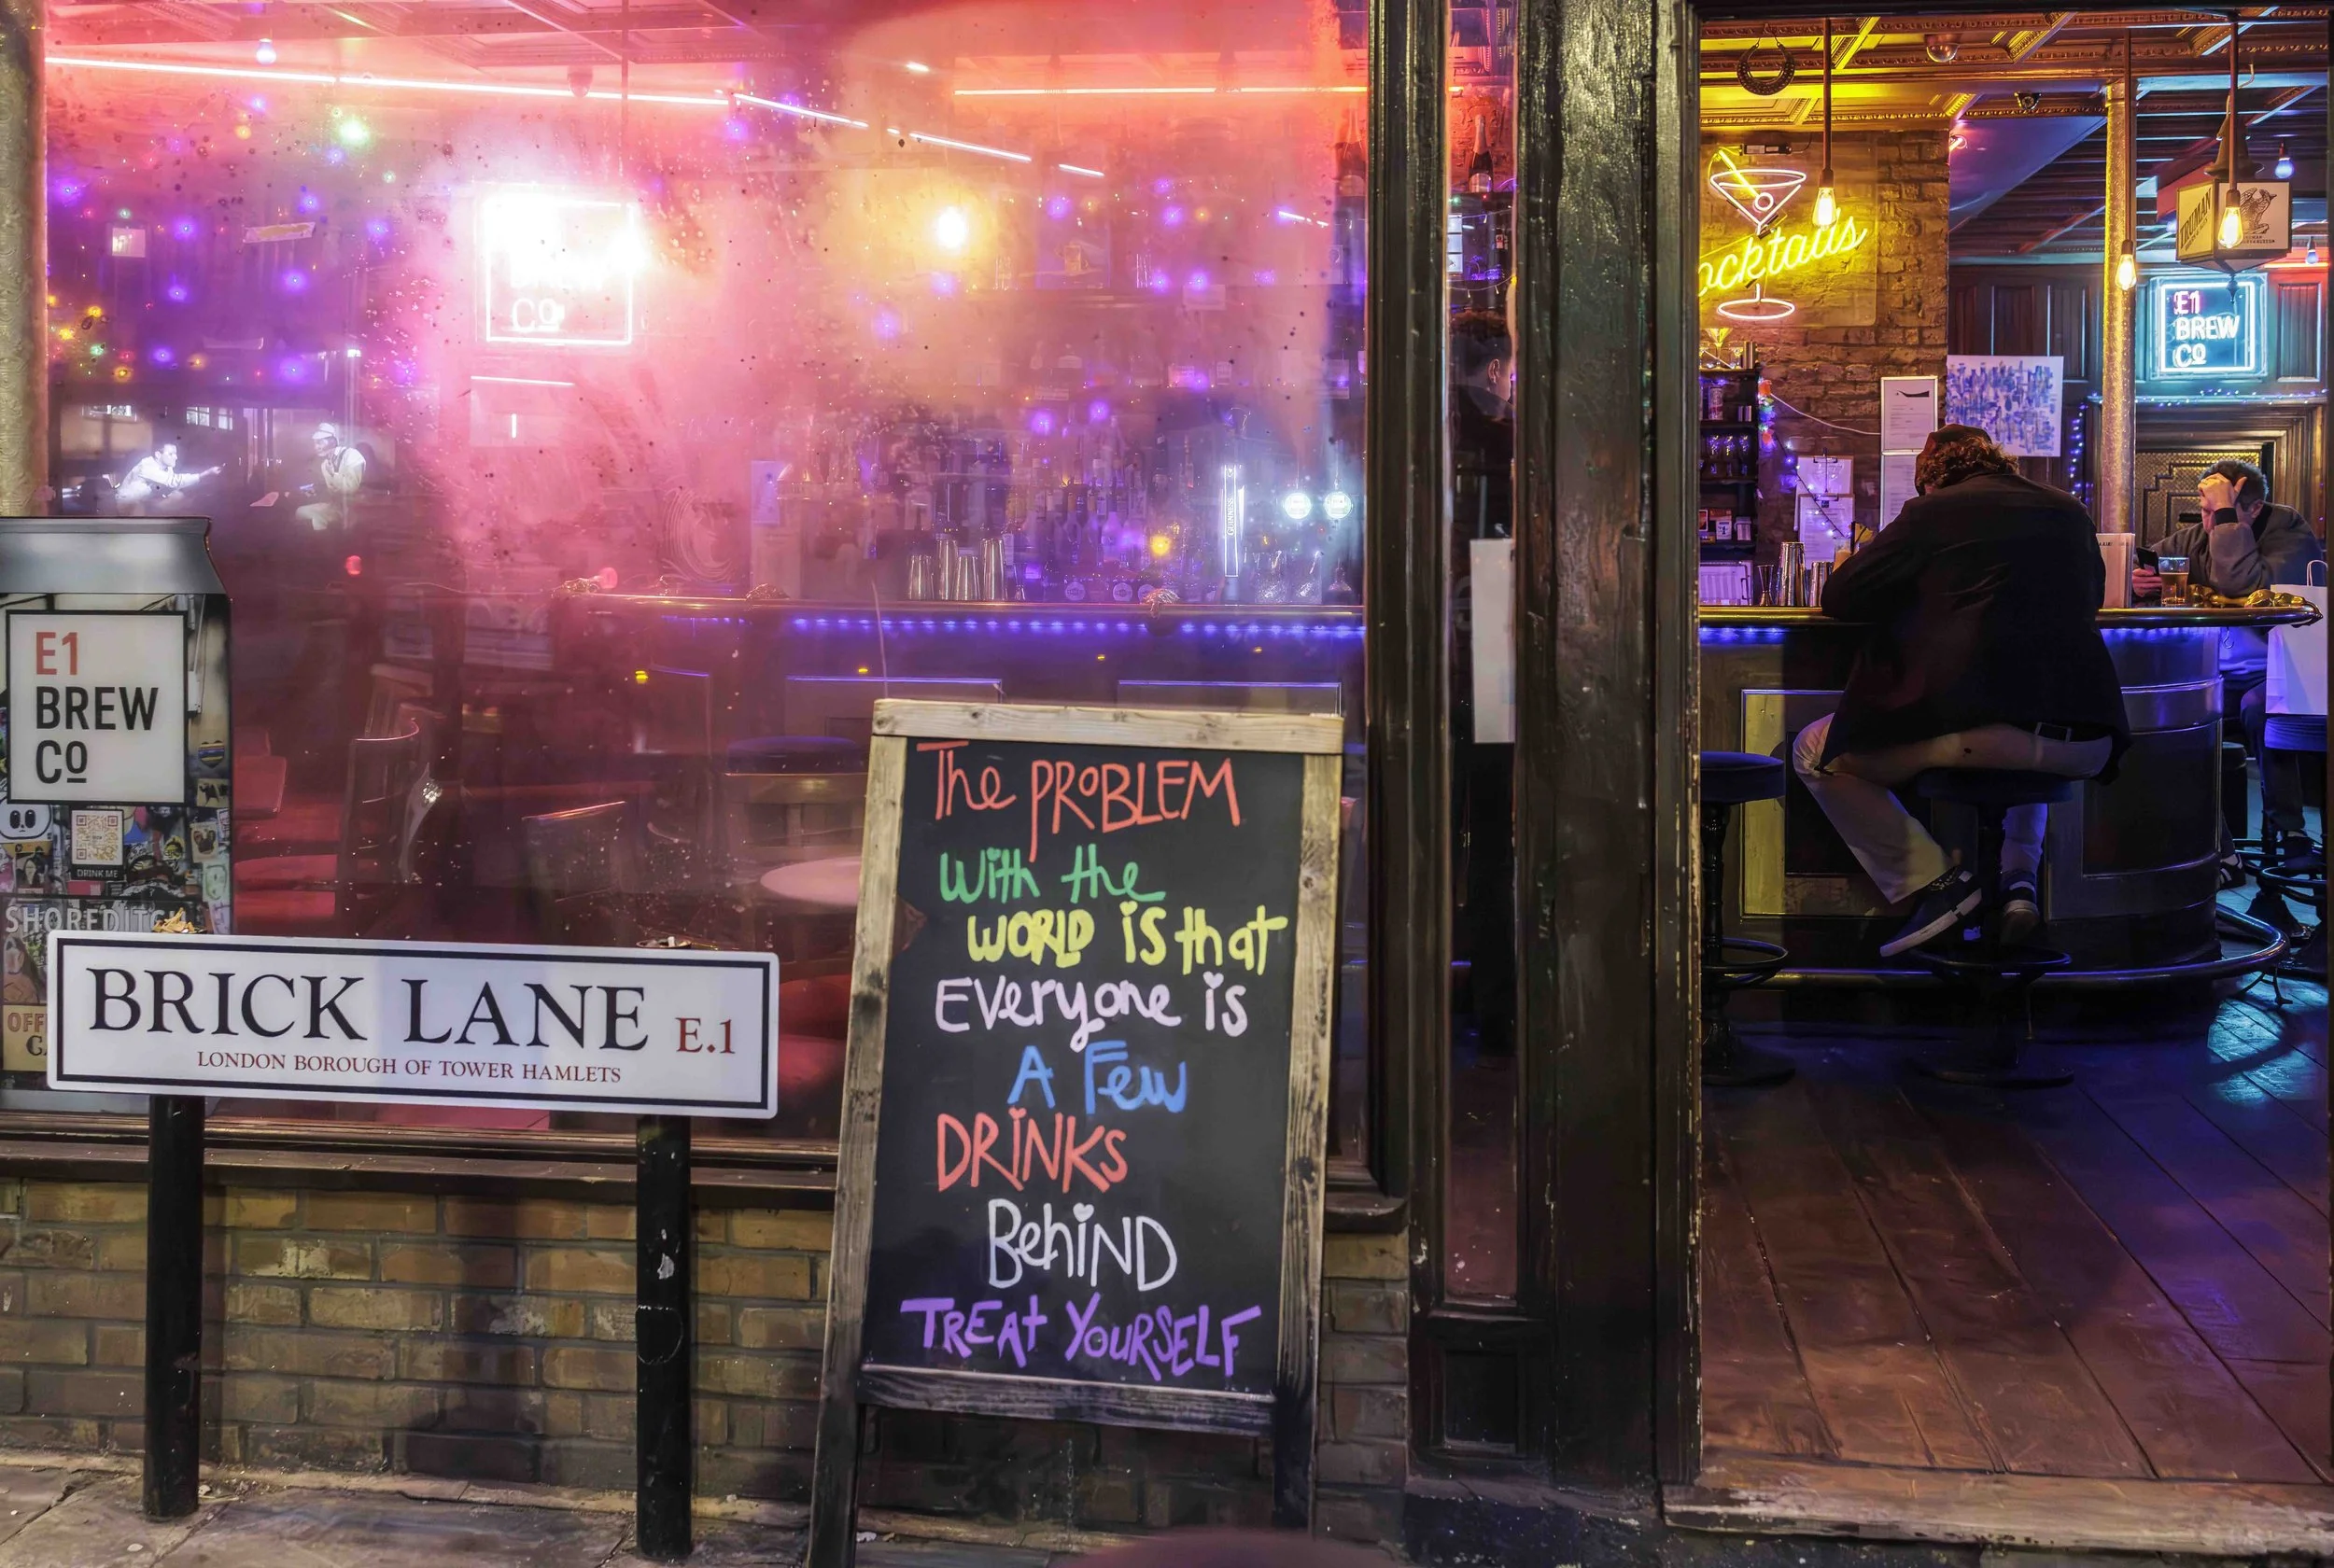 BREW
Co
GUINNESS
Cocktails
TRUMAN
E1
BREW
Co
E1
BREW
Co
DRINK ME
SHOREDITCH
The PROBLEM
With the
WORLD is that
EVeryone is
A Few
DRiNKs
BehiND
TREAt YouRSELF
BRICK LANE E.1
LONDON BOROUGH OF TOWER HAMLETS